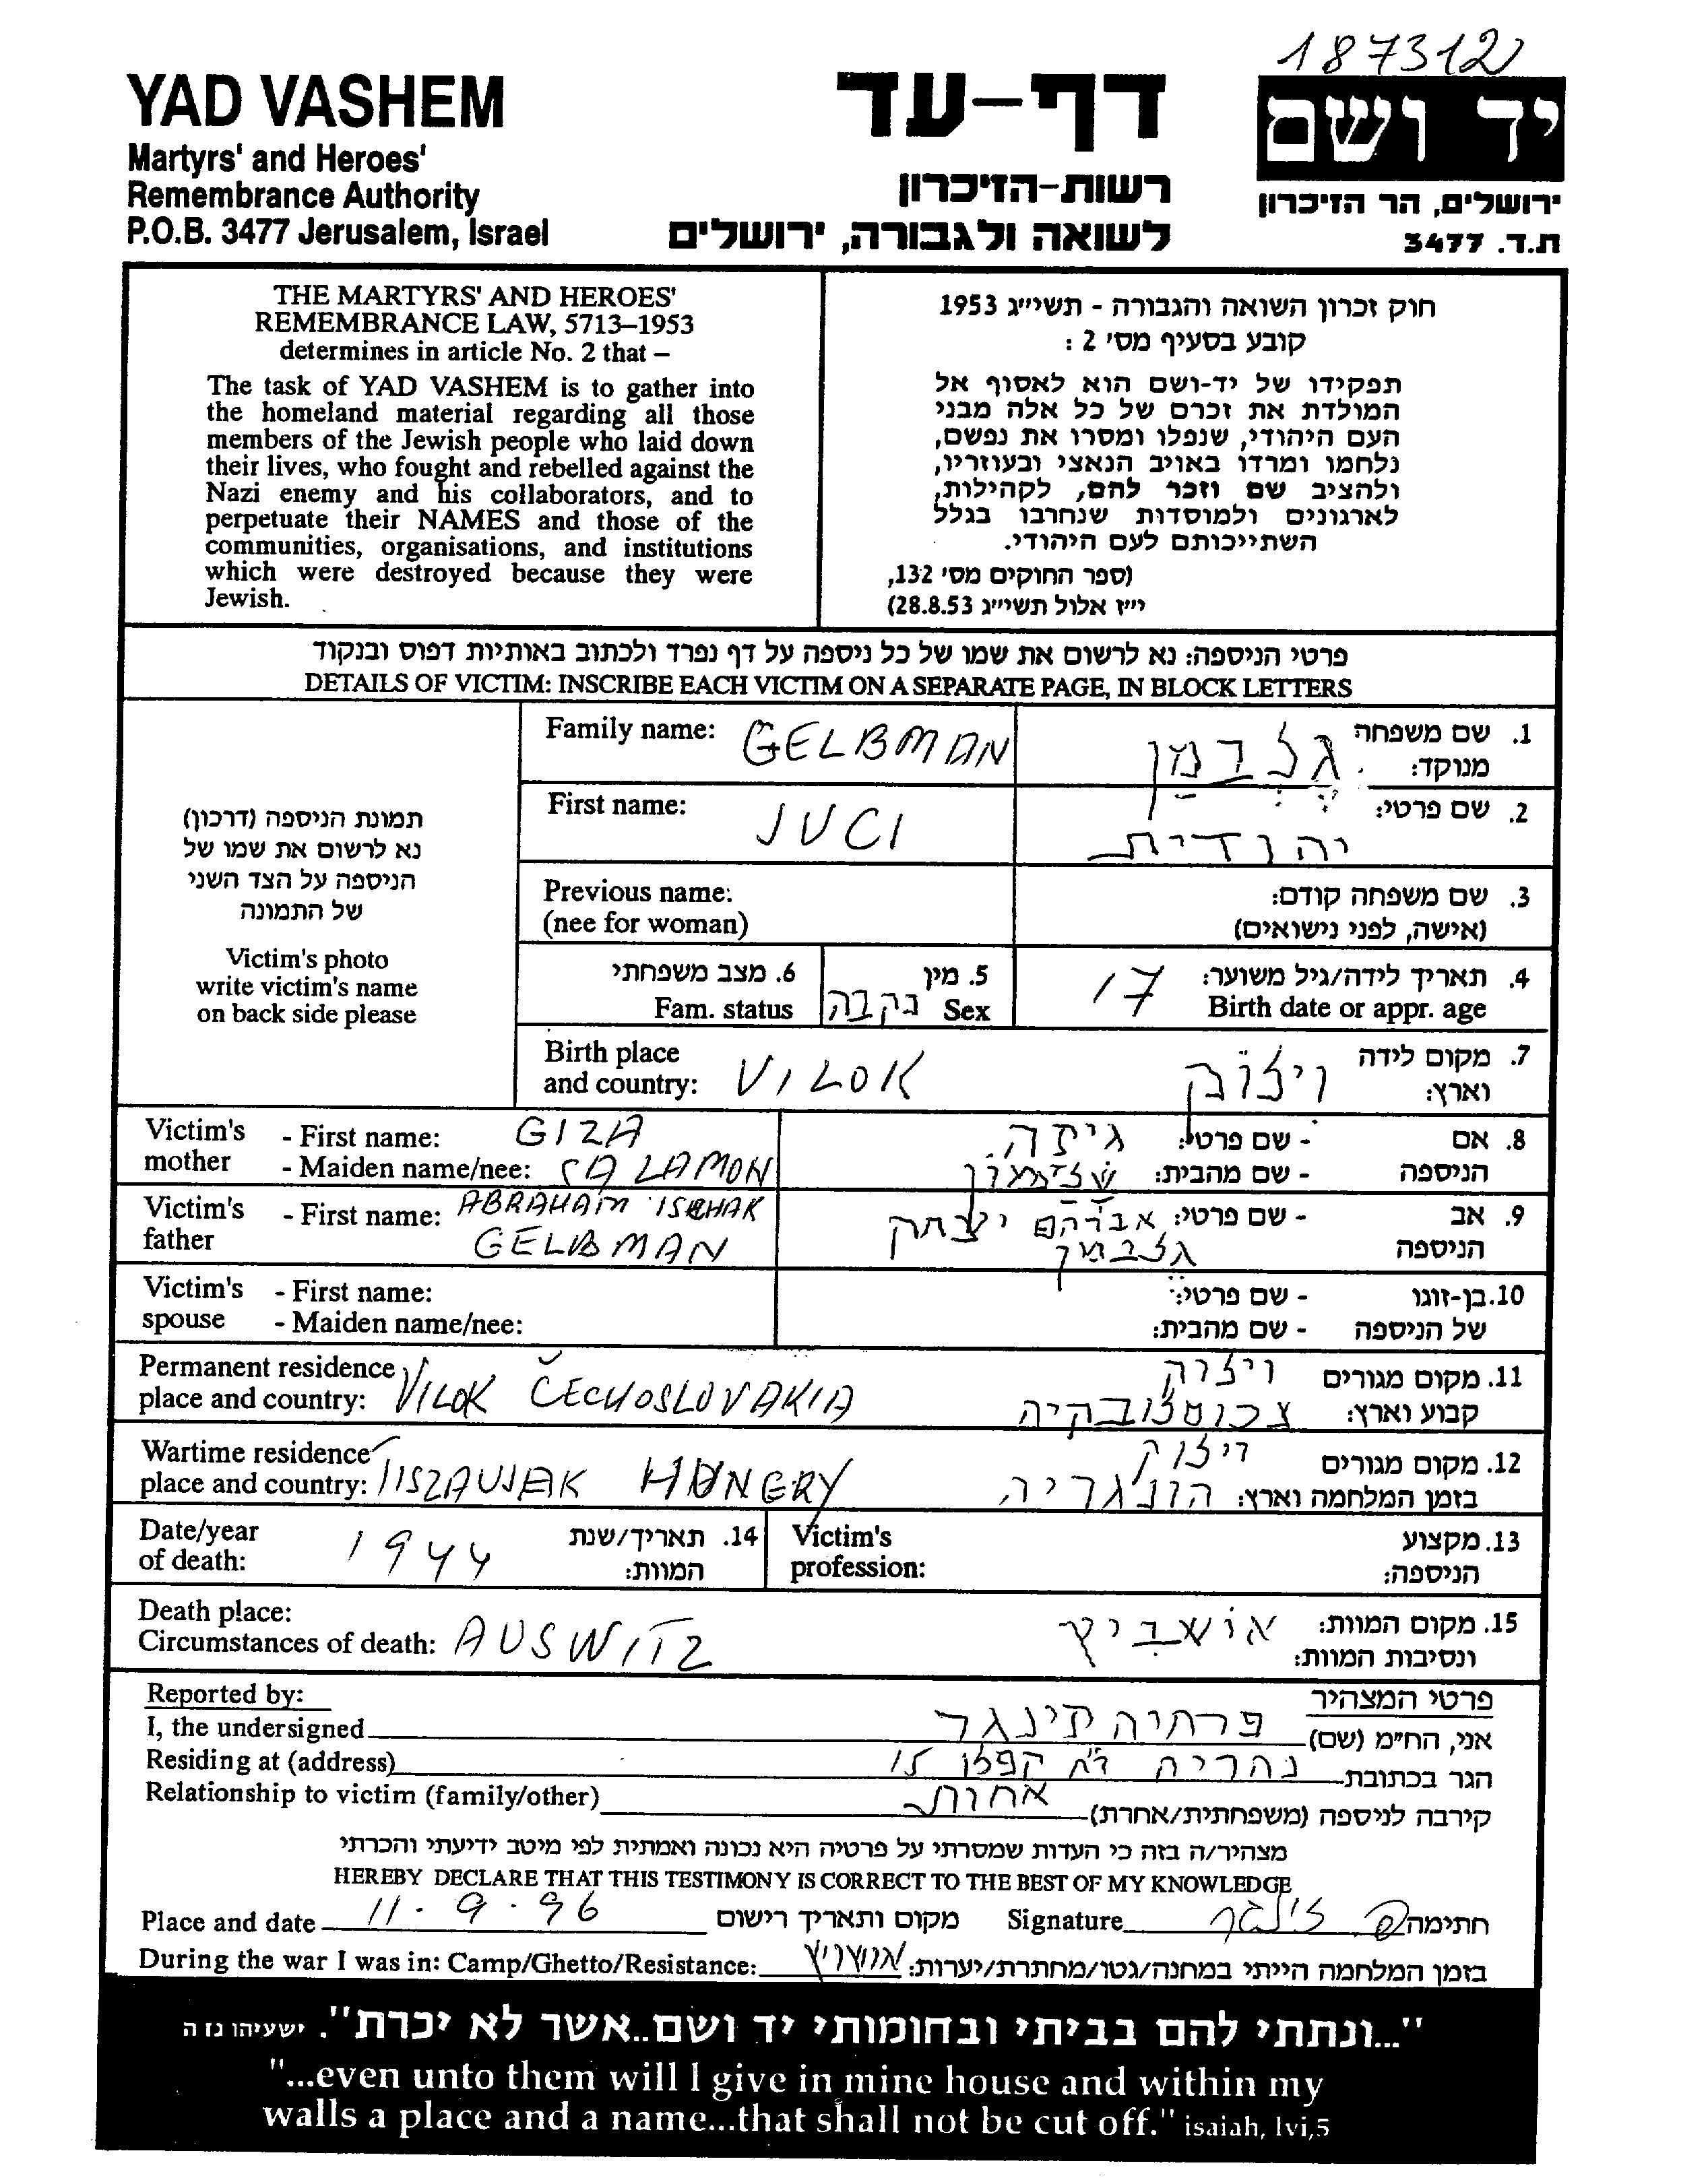 187312
YAD VASHEM
Martyrs' and Heroes'
Remembrance Authority
P.O.B. 3477 Jerusalem, Israel
דף-עד
רשות-הזיכרון
לשואה ולגבורה, ירושלים
יד ושם
ירושלים, הר הזיכרון
ת.ד. 3477
THE MARTYRS' AND HEROES'
REMEMBRANCE LAW, 5713–1953
determines in article No. 2 that –
The task of YAD VASHEM is to gather into
the homeland material regarding all those
members of the Jewish people who laid down
their lives, who fought and rebelled against the
Nazi enemy and his collaborators, and to
perpetuate their NAMES and those of the
communities, organisations, and institutions
which were destroyed because they were
Jewish.
חוק זכרון השואה והגבורה - תשי״ג 1953
קובע בסעיף מס' 2 :
תפקידו של יד-ושם הוא לאסוף אל
המולדת את זכרם של כל אלה מבני
העם היהודי, שנפלו ומסרו את נפשם,
נלחמו ומרדו באויב הנאצי ובעוזריו,
ולהציב שם וזכר להם, לקהילות,
לארגונים ולמוסדות שנחרבו בגלל
השתייכותם לעם היהודי.
(ספר החוקים מס' 132,
י״ז אלול תשי״ג 28.8.53)
פרטי הניספה: נא לרשום את שמו של כל ניספה על דף נפרד ולכתוב באותיות דפוס ובנקוד
DETAILS OF VICTIM: INSCRIBE EACH VICTIM ON A SEPARATE PAGE, IN BLOCK LETTERS
תמונת הניספה (דרכון)
נא לרשום את שמו של
הניספה על הצד השני
של התמונה
Victim's photo
write victim's name
on back side please
Family name: GELBMAN
1. שם משפחה
מנוקד: גלבמן
First name: JUCI
2. שם פרטי:
יהודית
Previous name:
(nee for woman)
3. שם משפחה קודם:
(אישה, לפני נישואים)
6. מצב משפחתי
Fam. status
5. מין
Sex נקבה
4. תאריך לידה/גיל משוער:
Birth date or appr. age 17
Birth place
and country: VILOK
7. מקום לידה
וארץ: וילוק
Victim's mother - First name: GIZA
- Maiden name/nee: SALAMON
8. אם - שם פרטי: גיזה
הניספה - שם מהבית: שלמון
Victim's father - First name: ABRAHAM ISCHAK
GELBMAN
9. אב - שם פרטי: אברהם יצחק
הניספה גלבמן
Victim's spouse - First name:
- Maiden name/nee:
10. בן-זוגו - שם פרטי:
של הניספה - שם מהבית:
Permanent residence
place and country: VILOK ČECHOSLOVAKIA
11. מקום מגורים וילוק
קבוע וארץ: צכוסלובקיה
Wartime residence
place and country: TISZAUJAK HUNGRY
12. מקום מגורים וילוק
בזמן המלחמה וארץ: הונגריה
Date/year
of death: 1944
14. תאריך/שנת
המוות:
Victim's
profession:
13. מקצוע
הניספה:
Death place:
Circumstances of death: AUSWITZ
15. מקום המוות: אושביץ
ונסיבות המוות:
Reported by:
פרטי המצהיר
I, the undersigned
אני, הח״מ (שם) פרחיה
Residing at (address)
הגר בכתובת נהריה רח קפלן 15
Relationship to victim (family/other)
קירבה לניספה (משפחתית/אחרת) אחות
מצהיר/ה בזה כי העדות שמסרתי על פרטיה היא נכונה ואמתית לפי מיטב ידיעתי והכרתי
HEREBY DECLARE THAT THIS TESTIMONY IS CORRECT TO THE BEST OF MY KNOWLEDGE
Place and date 11.9.96 מקום ותאריך רישום
Signature חתימה
During the war I was in: Camp/Ghetto/Resistance:
בזמן המלחמה הייתי במחנה/גטו/מחתרת/יערות:
"...ונתתי להם בביתי ובחומותי יד ושם..אשר לא יכרת". ישעיהו נז ה
"...even unto them will I give in mine house and within my
walls a place and a name...that shall not be cut off." isaiah, lvi,5